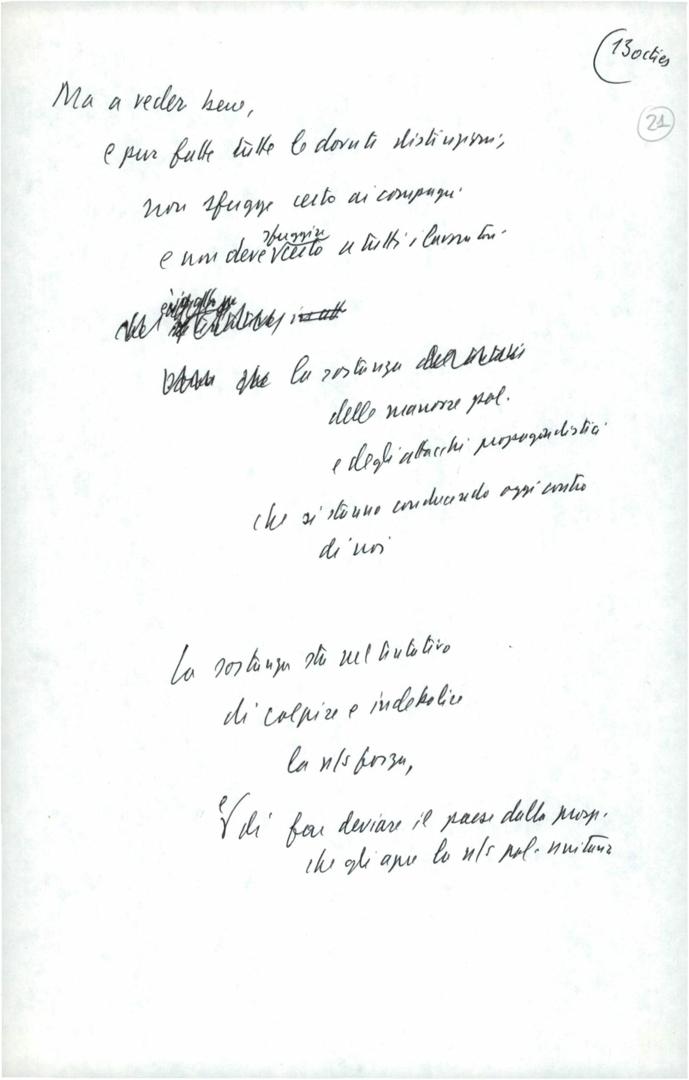 (13 octies
21
Ma a veder bene,
e pur fatte tutte le dovute distinzioni,
non sfugge certo ai compagni
sfuggire
e non deve certo a tutti i lavoratori
la sostanza
delle manovre pol.
e degli attacchi propagandistici
che si stanno conducendo oggi contro
di noi
La sostanza sta nel tentativo
di colpire e indebolire
la n/s forza,
e
di far deviare il paese dalla prosp.
che gli apre la n/s pol. unitaria